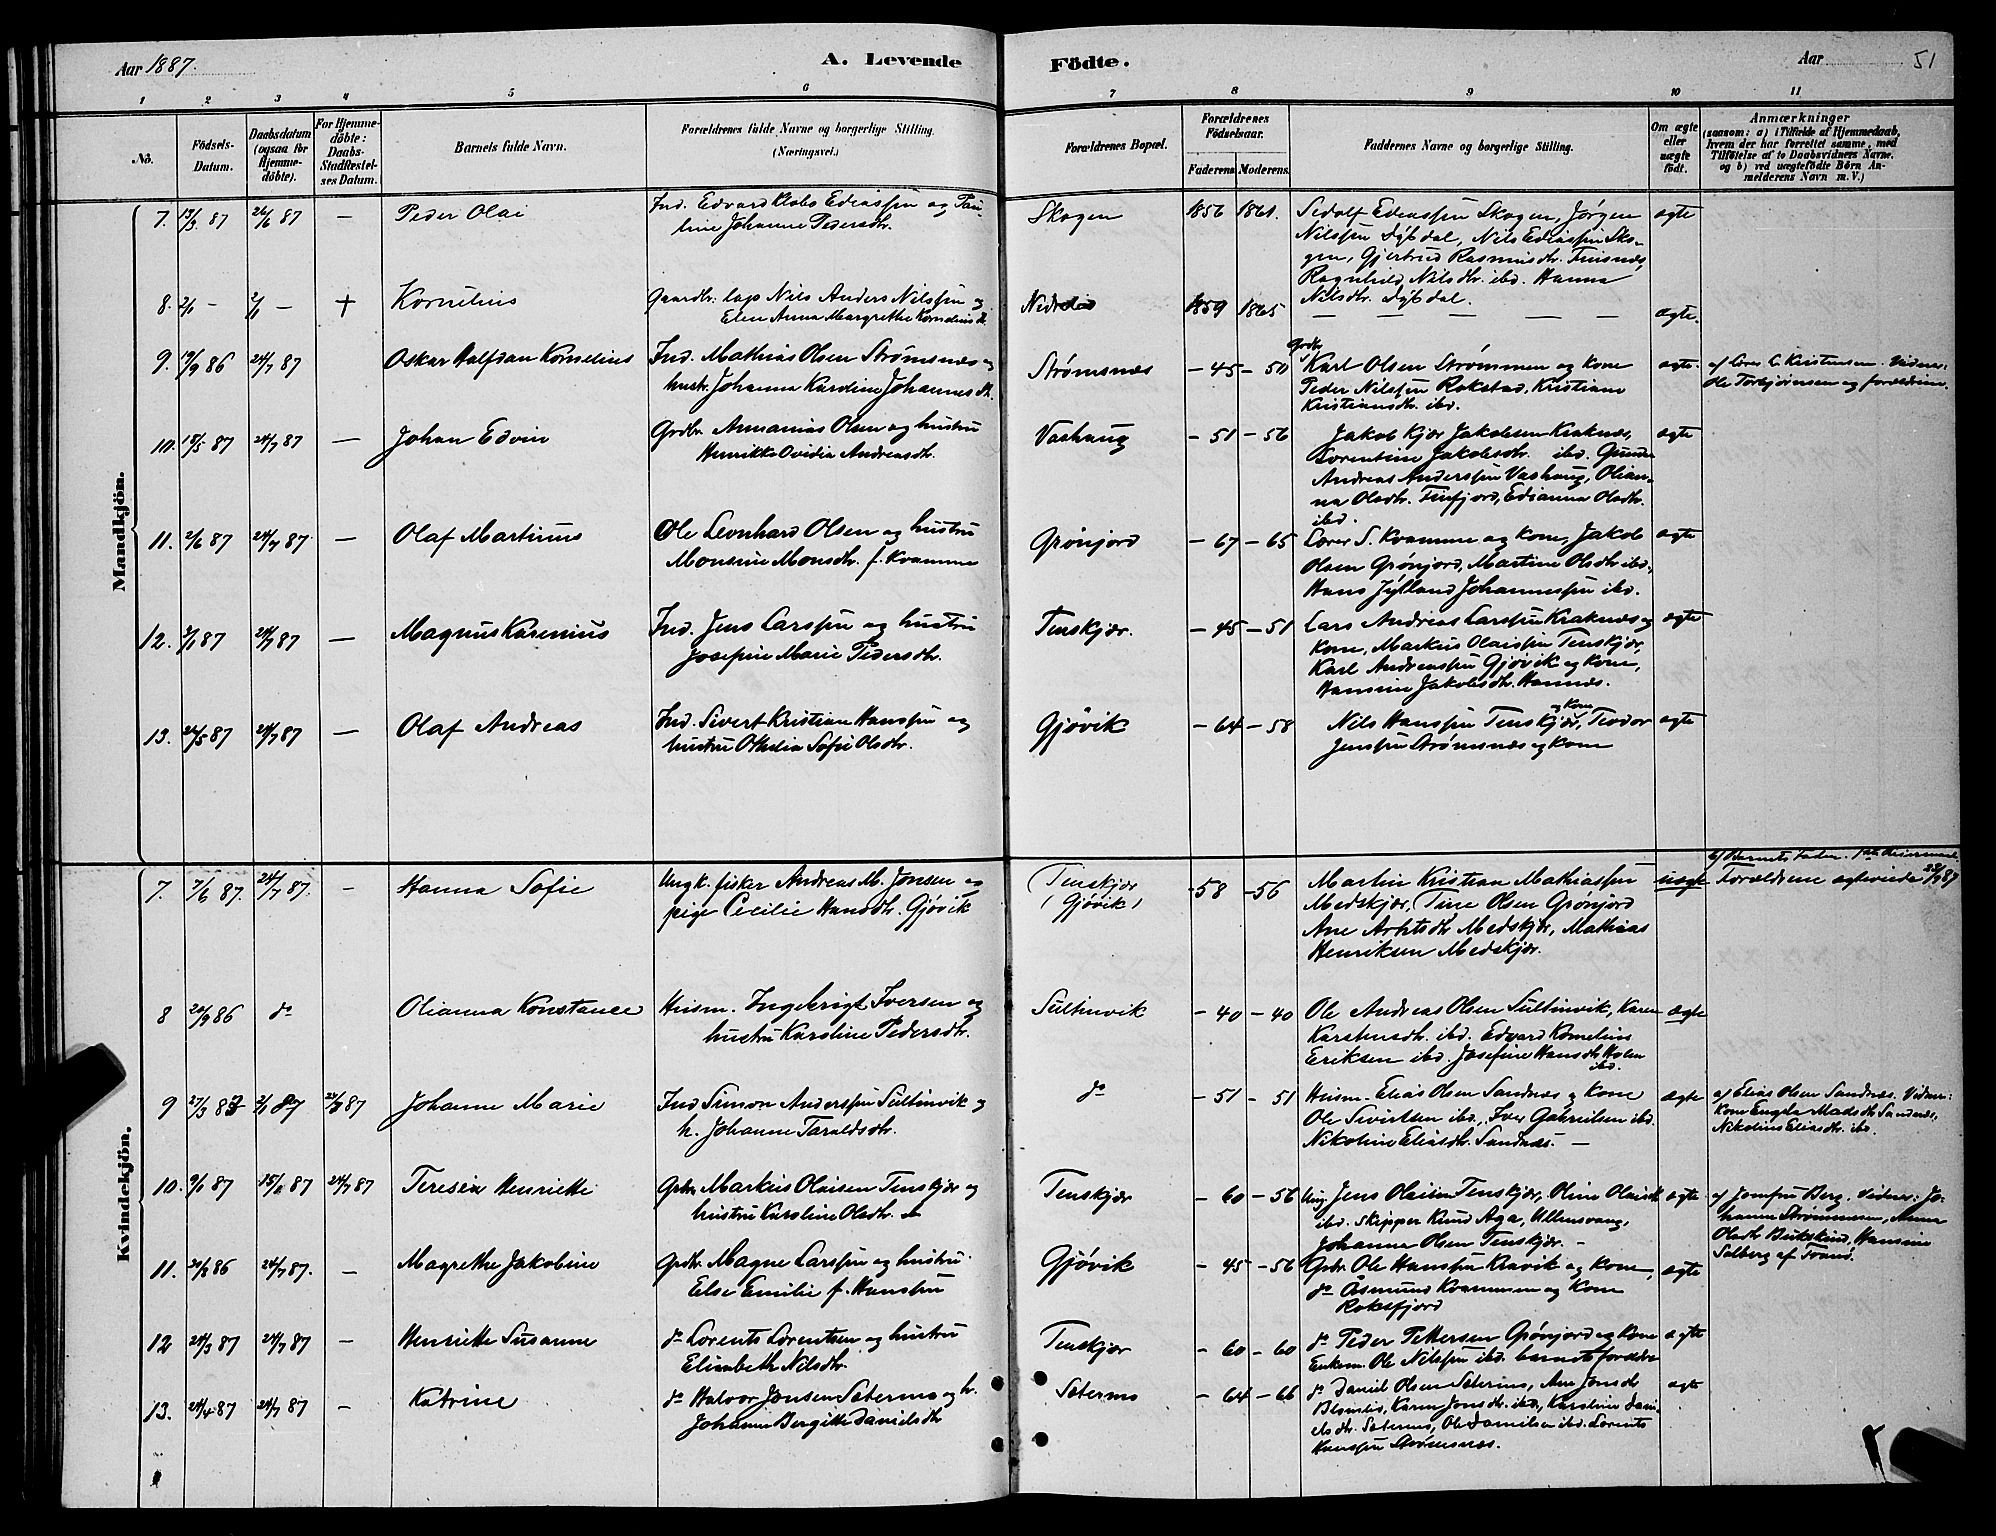 Aar 1887.
A. Levende Födte.
Aar 51
1 2 3 4 5 6 7 8 9 10 11
No.
Födsels-
Datum.
Daabsdatum
(ogsaa for
Hjemme-
döbte).
For Hjemme-
döbte:
Daabs-
Stadfæstel-
ses Datum.
Barnets fulde Navn.
Forældrenes fulde Navne og borgerlige Stilling.
(Næringsvei.)
Forældrenes Bopæl.
Forældrenes
Födselsaar.
Faderens Moderens
Faddernes Navne og borgerlige Stilling.
Om ægte
eller
uægte
födt.
Anmærkninger
(saasom: a) i Tilfælde af Hjemmedaab,
hvem der har forrettet samme, med
Tilföielse af to Daabsvidners Navne,
og b) ved uægtefödte Börn An-
melderens Navn m. V.)
Mandkjön.
7. 13/3 87 26/6 87 — Peder Olai
Ind. Edvard Klabo Ediassen og Pau-
line Johanne Pedersdr.
Skogen 1856 1861.
Sedolf Ediassen Skogen, Jørgen
Nilssen Dybdal, Nils Ediassen Sko-
gen, Gjertrud Rasmusdr. Finsnæs,
Ragnhild Nilsdr. ibd. Hanna
Nilsdr. Dybdal.
ægte
8. — — + Kornelius
Gaardbr. laps Nils Anders Nilssen og
Elen Anna Margrethe Korneliusdr.
1859 1865 — — — — —
ægte.
9. 19/9 86 24/7 87 Oskar Halfdan Kornelius
Ind. Mathias Olsen Strømsnæs og
hustr. Johanna Kardine Johannesdr.
Strømsnæs — 45 — 50
Grdbr.
Karl Olsen Strømmen og Kone
Peder Nilssen Rokstad, Kristiane
Kristiansdr. ibd.
ægte.
af Lærer C. Kristensen. Vidner:
Ole Torbjørnsen og forældrene.
10. 18/5 87 24/7 87 — Johan Edvin
Grdbr. Annanias Olsen og hustru
Henrikka Ovidia Andreasdr.
Vashaug — 51 — 56
Jakob Kjær Jakobsen Kraknæs,
Lorentine Jakobsdr. ibd.
Andreas Anderssen Vashaug, Olian-
na Olsdr. Finfjord, Edianna Olsdr.
ibd.
ægte
11. 2/6 87 24/7 87. — Olaf Martinus
Ole Leonhard Olsen og hustru
Monsine Monsdr. f. Kvamme
Grønjord — 67 — 65
Lærer S. Kvamme og Kone, Jakob
Olsen Grønjord, Martine Olsdr ibd.,
Hans Jylland Johannessen ibd.
ægte
12. 2/1 87 24/7 87 — Magnus Karenius
Ind. Jens Larssen og hustru
Josefine Marie Pedersdr.
Tenskjær. — 45 — 51
Lars Andreas Larssen Kraknæs og
Kone, Markus Olaissen Tenskjær,
Karl Andreassen Gjøvik og Kone,
Hansine Jakobsdr. Hamnæs.
ægte
13. 24/5 87 24/7 87 — Olaf Andreas
Ind. Sivert Kristian Hanssen og
hustru Othelia Sofie Olsdr.
Gjøvik — 64 — 58
Nils Hanssen Tenskjær og Kone, Teodor
Jenssen Strømsnæs og Kone
ægte
Kvindekjön.
7. 7/6 87. 24/7 87. — Hanna Sofie
Ungk. fisker Andreas M. Jensen og
pige Cecilie Hansdr. Gjøvik
(Tenskjær
(Gjøvik)
— 58 — 56
Martin Kristian Mathiassen
Medskjær, Tine Olsen Grønjord
Ane Arntsdr Medskjær, Mathias
Henriksen Medskjær.
uægte
b) Barnets Fader.
Forældrene ægteviede 87
8 20/9 86 do Olianna Konstance
Husm. Ingebrigt Iversen og
hustru Karoline Pedersdr.
Sultinvik — 40 — 40
Ole Andreas Olsen Sultinvik, Karen
Karstensdr. ibd. Edvard Kornelius
Eriksen ibd. Josefine Hansdr. Holen
ibd.
ægte
9 27/3 83 2/1 87 24/7 87 Johanne Marie
Ind Simon Anderssen Sultinvik og
h. Johanne Taraldsdr.
do — 51 — 51
Husm. Elias Olsen Sandnæs og Kone
Ole Sivertsen ibd., Iver Gabrielsen ibd.
Nikoline Eliasdr. Sandnæs. —
ægte
af Elias Olsen Sandnæs. Vidner:
Kone Engela Madsdr. Sandnæs,
Nikoline Eliasdr. ibd.
10. 9/1 87 15/1 87 24/7 87 Teresia Henriette
Grdbr. Markus Olaisen Tenskjær og
hustru Karoline Olsdr.
Tenskjær — 60 — 56
Ung. Jens Olaisen Tenskjær, Oline Olaisdr.
ibd. Skipper Knud Aga, Ullensvang,
Johanna Olsen Tenskjær. —
ægte
af Jomfru Berg. Vidner: Jo-
hanna Strømmesen, Anna
Olsdr. Bukskind, Hansine
Solberg af Tranø.
11. 86 24/7 87. — Magrethe Jakobine
Grdbr. Magne Larssen og hustru
Else Emilie f. Hanssen
Gjøvik — 45 — 56
Grdbr. Ole Hanssen Kravik og Kone,
do Åsmund Kvammen og Kone
Roksfjord
ægte
12 24/3 87 24/7 87 — Henriette Susanne
do Lorents Lorentsen og hustru
Elisabeth Nilsdr.
Tenskjær — 60 — 60
do Peder Pettersen Grønjord og Kone
Enkem. Ole Nilssen ibd. barnets forældre
ægte
13. 24/4 87 24/7 87 — Katrine
do Halvor Jensen Sætermo og h.
Johanne Bergitte Danielsdr
Sætermo — 64 — 66
do Daniel Olsen Sætermo, Ane Jonsdr
Blomlid, Karen Jonsdr. ibd., Karoline Dani-
elsdr. Sætermo, Ole Danielsen ibd. Lorents
Hanssen Strømsnæs.
ægte